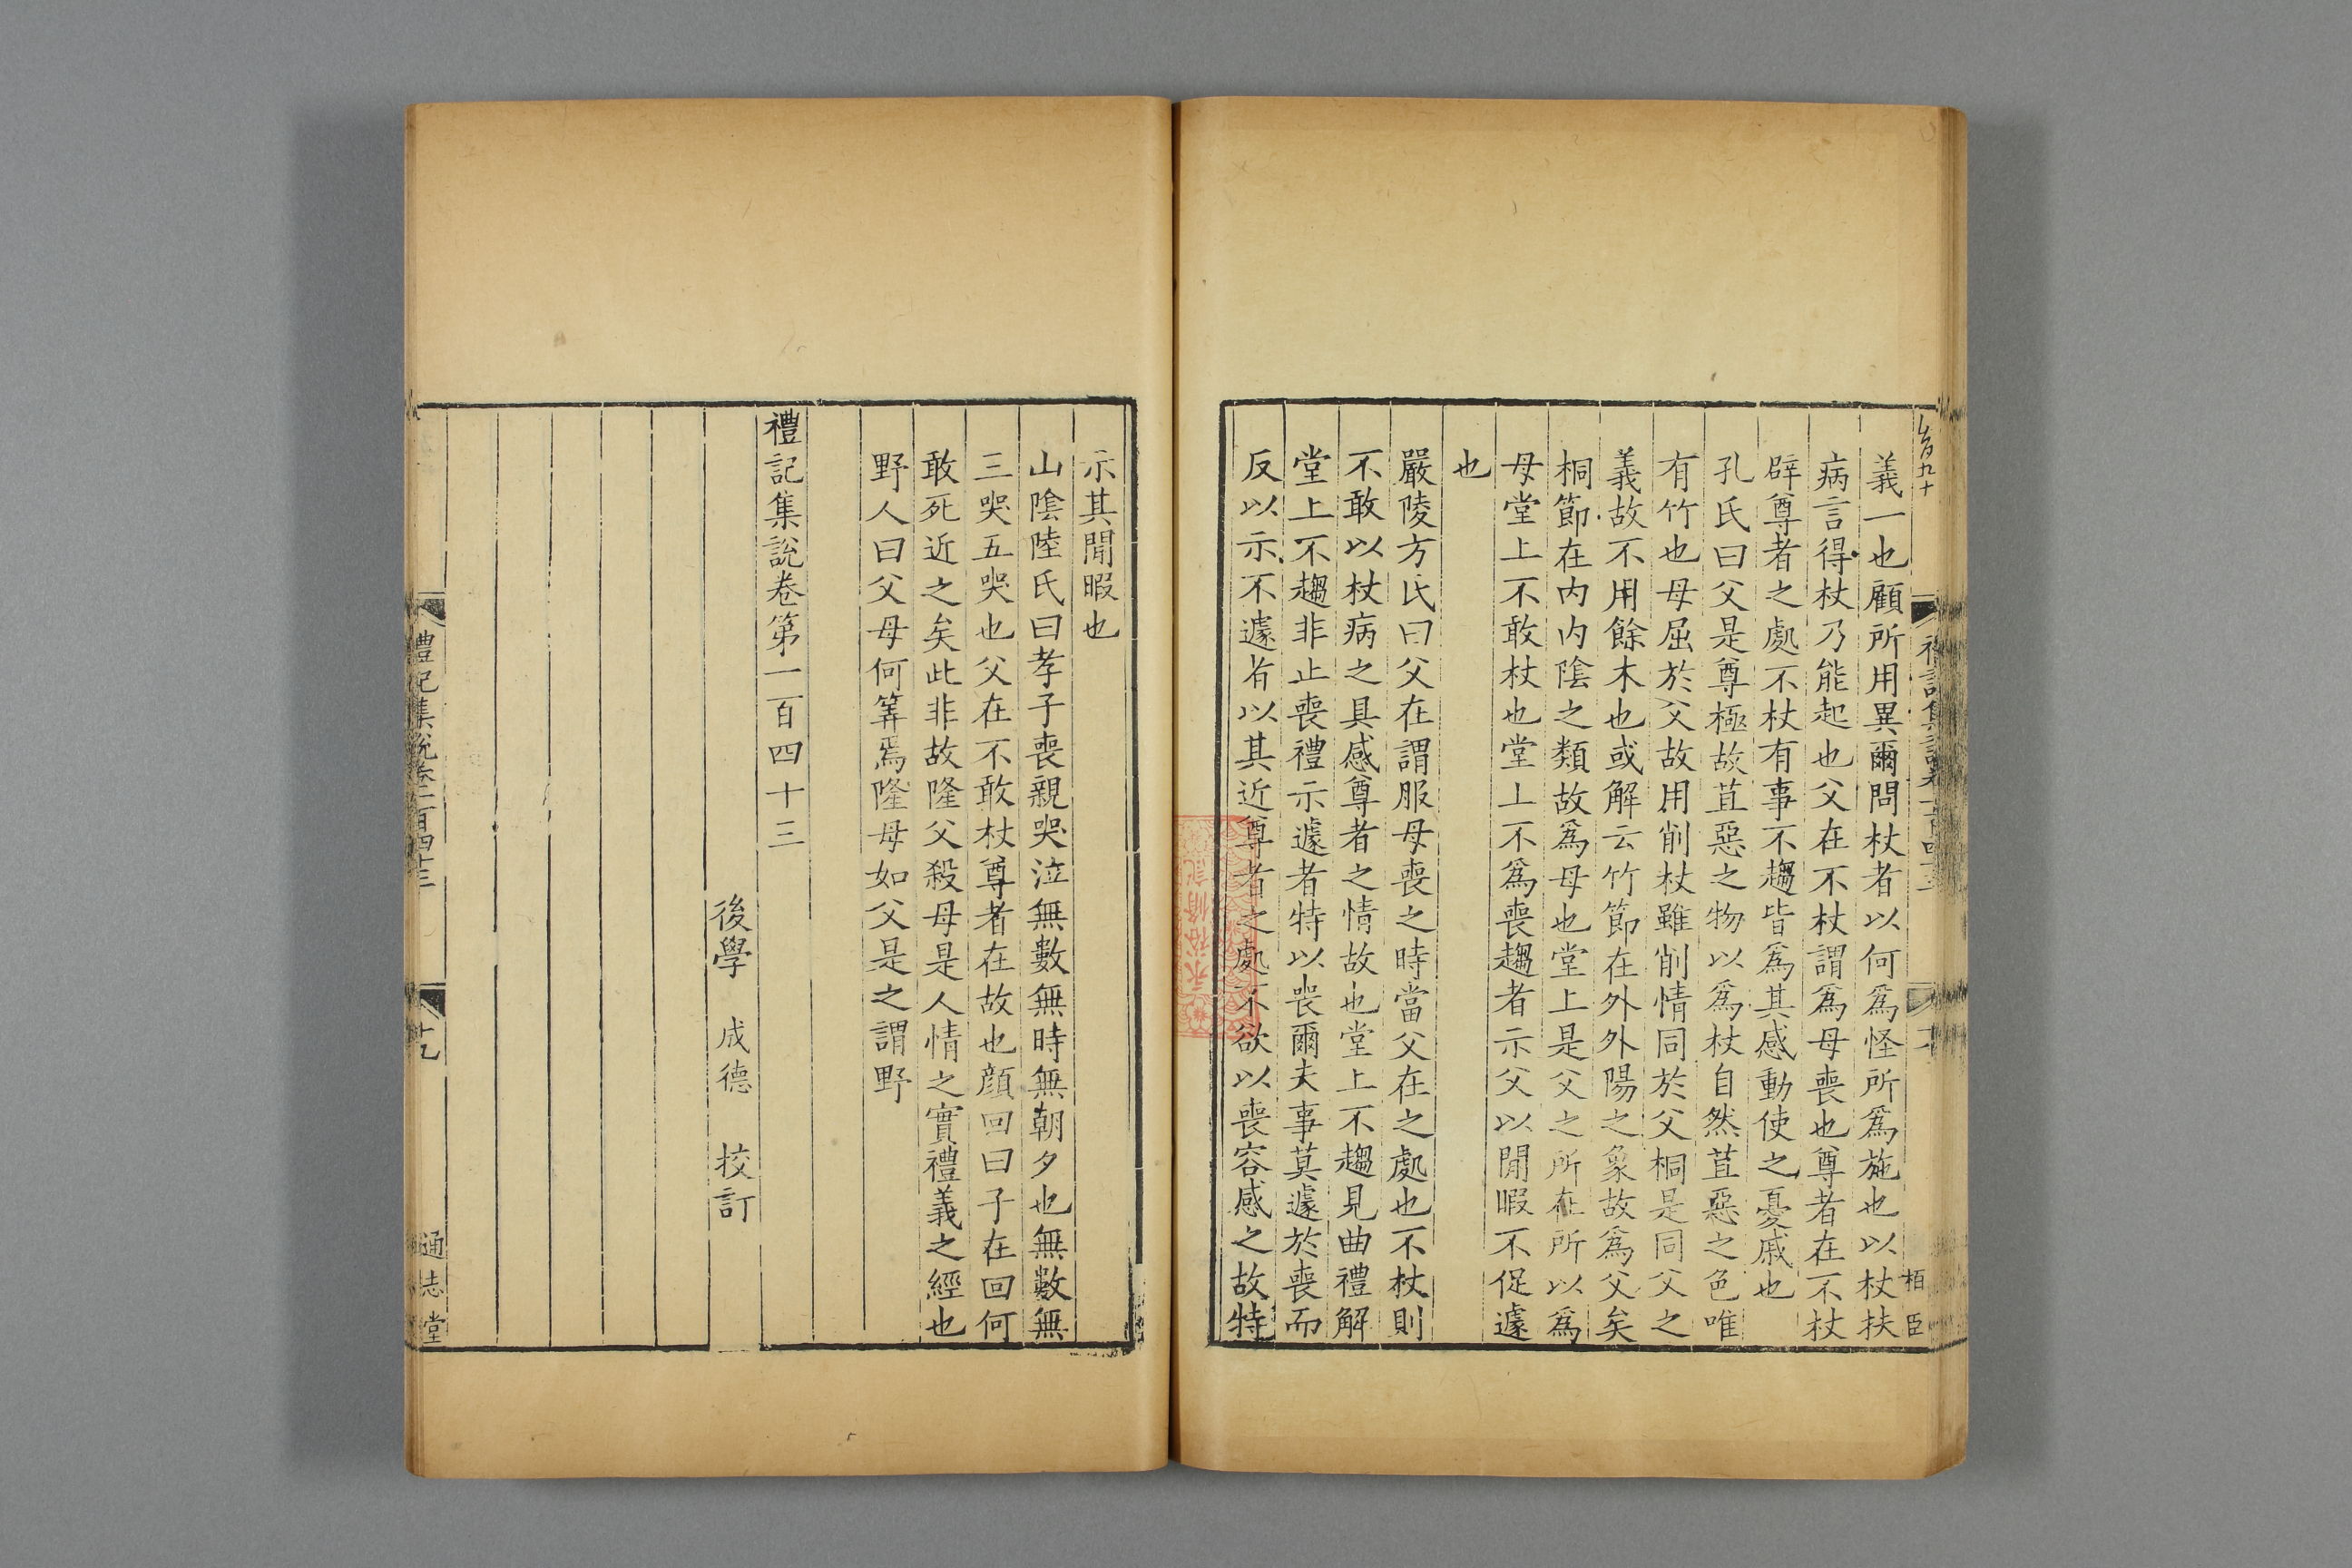 義一也顧所用異爾問杖者以何爲怪所爲施也以杖扶
病言得杖乃能起也父在不杖謂爲母喪也尊者在不杖
辟尊者之處不杖有事不趨皆爲其感動使之憂戚也
孔氏曰父是尊極故苴惡之物以爲杖自然苴惡之色唯
有竹也母屈於父故用削杖雖削情同於父桐是同父之
義故不用餘木也或解云竹節在外外陽之象故爲父矣
桐節在内内陰之類故爲母也堂上是父之所在所以爲
母堂上不敢杖也堂上不爲喪趨者示父以閒暇不促遽
也
嚴陵方氏曰父在謂服母喪之時當父在之處也不杖則
不敢以杖病之具感尊者之情故也堂上不趨見曲禮解
堂上不趨非止喪禮示遽者特以喪爾夫事莫遽於喪而
反以示不遽者以其近尊者之處不欲以喪容感之故特
示其閒暇也
山陰陸氏曰孝子喪親哭泣無數無時無朝夕也無數無
三哭五哭也父在不敢杖尊者在故也顔回曰子在回何
敢死近之矣此非故隆父殺母是人情之實禮義之經也
野人曰父母何筭焉隆母如父是之謂野
禮記集說卷第一百四十三
後學 成德 校訂
禮記集說卷一百四十三
通志堂
栢臣